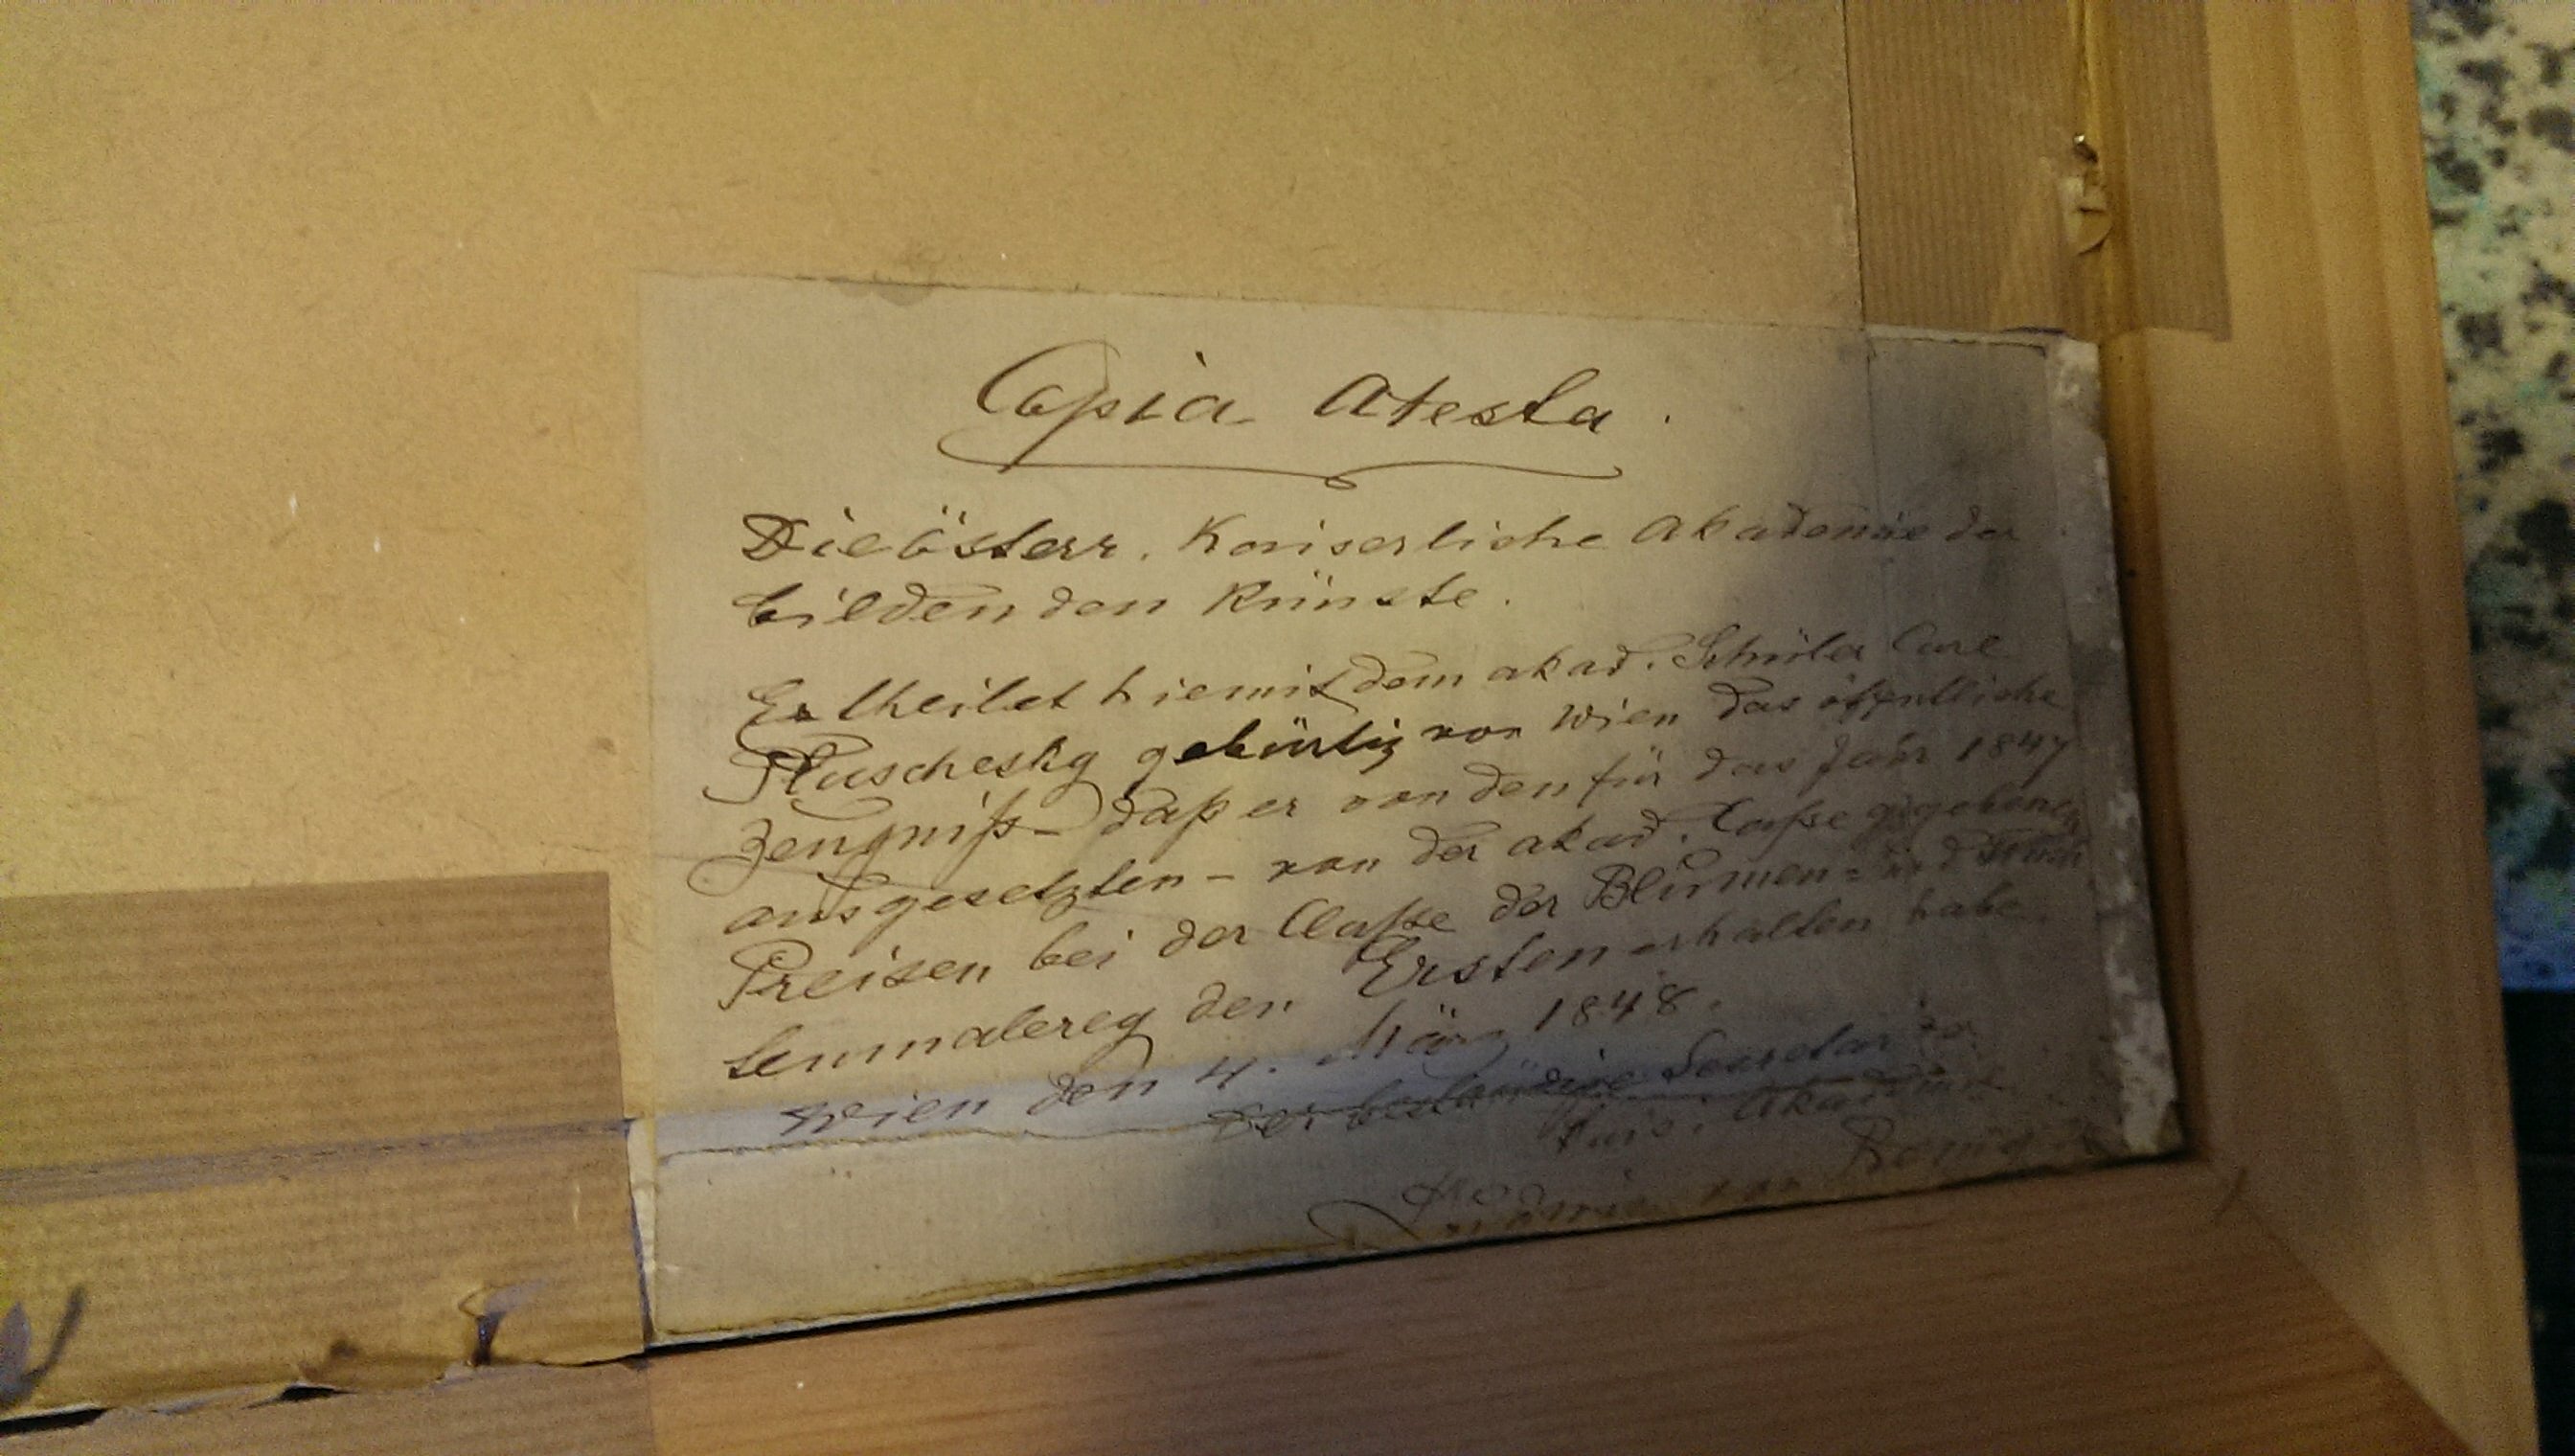 Copia Atesta.
Die österr. Kaiserliche Akademie der
bildenden Künste.
Ertheilet hiemit dem akad. Schüler Carl
Pluschesky gebürtig von Wien das öffentliche
Zeugniß – daß er von den für das Jahr 1847
ausgesetzten – von der akad. Caße gegebenen
Preisen bei der Claße der Blumen= und
termalerey den Ersten erhalten habe.
Wien den 4. März 1848.
Der beständige Secretär der
Akademie
von